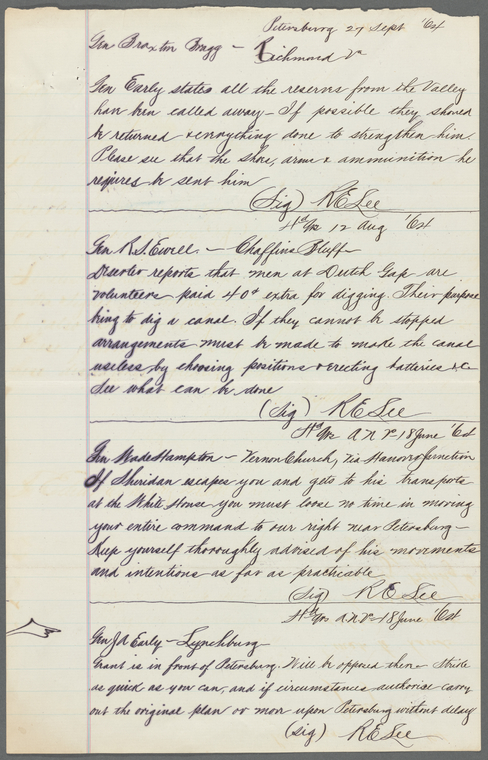 Petersburg 27 Sept '64
Gen Braxton Bragg - Richmond Va
Gen Early states all the reserves from the Valley
have been called away - If possible they should
be returned & everything done to strengthen him.
Please see that the shoes, arms & ammunition he
requires be sent him
(Sig) R E Lee
Hd Qrs 12 Aug '64
Gen R. S. Ewell. - Chaffins Bluff
Deserter reports that men at Dutch Gap are
volunteers paid 40¢ extra for digging. Their purpose
being to dig a canal. If they cannot be stopped
arrangements must be made to made the canal
useless by choosing positions & erecting batteries &c
See what can be done
(Sig) R. E Lee
Hd Qrs A N V 18 June '64
Gen Wade Hampton - Vernon Church, via Hanover Junction
If Sheridan escapes you and gets to his transports
at the White House you must loose no time in moving
your entire command to our right near Petersburg -
Keep yourself thoroughly advised of his movements
and intentions as far as practicable
(Sig) R E Lee
Hd Qrs A N V - 18 June '64
Gen J A Early - Lynchburg
Grant is in front of Petersburg. Will be opposed there - Strike
as quick as you can, and if circumstances authorise carry
out the original plan or move upon Petersburg without delay
(sig) R E Lee